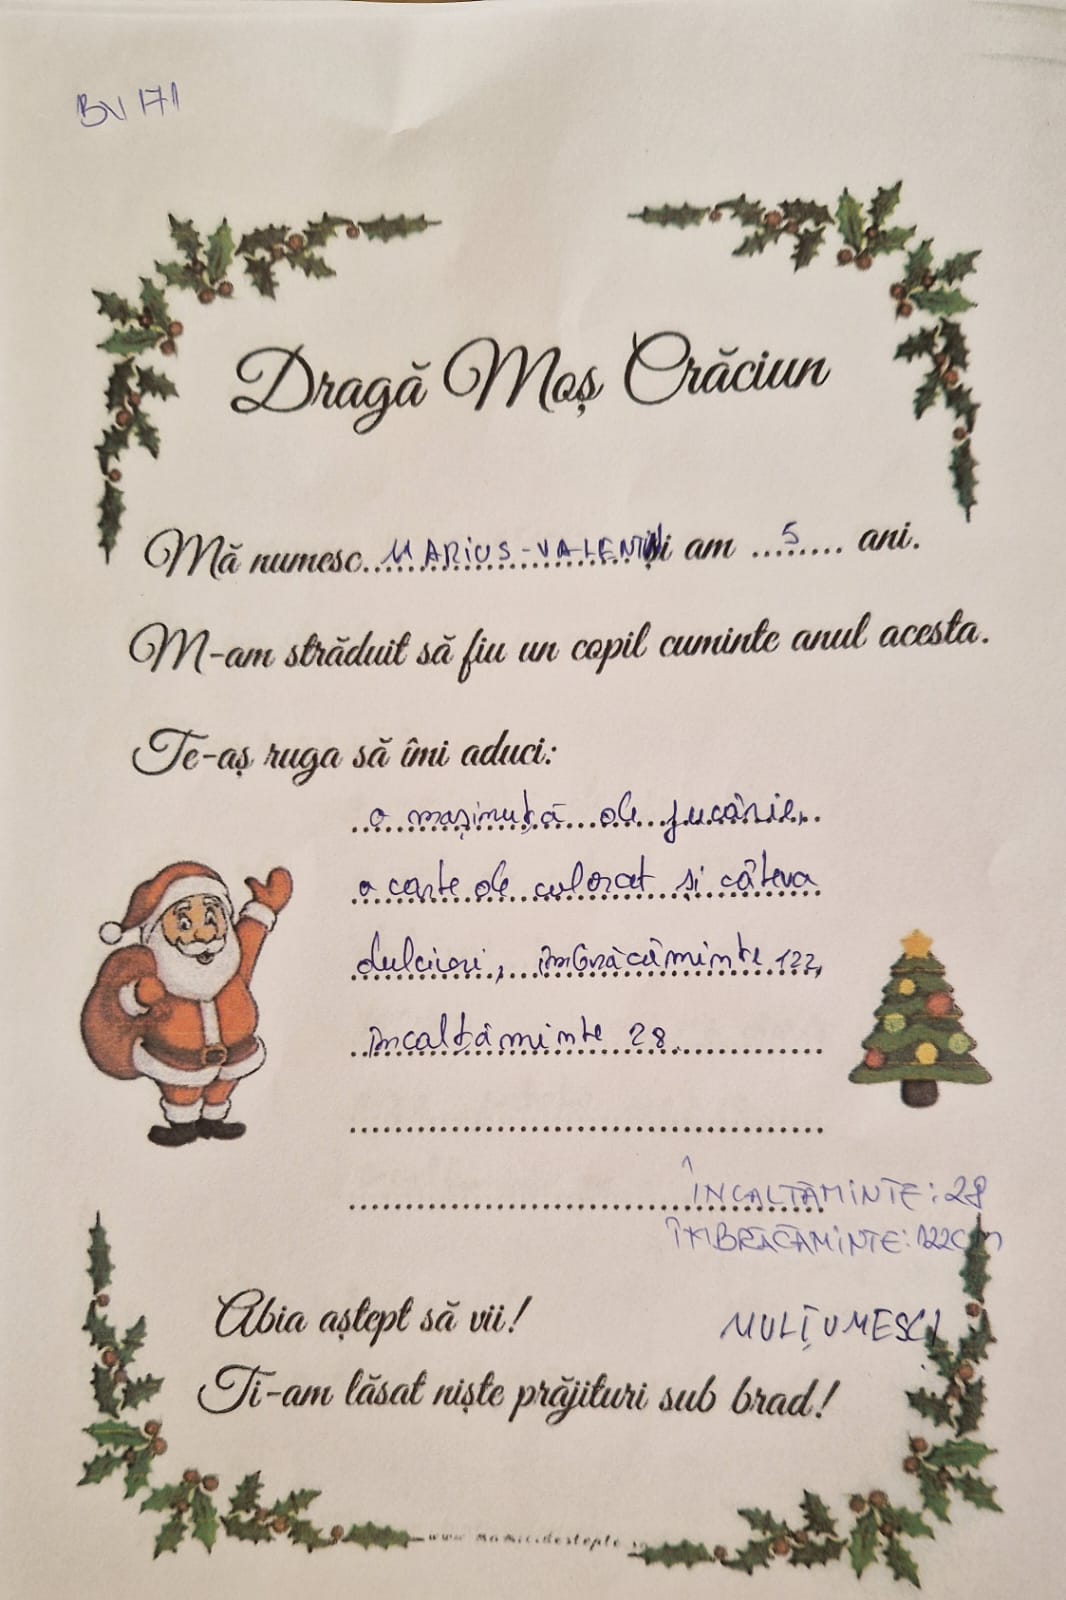 BV 171
Dragă Moș Crăciun
Mă numesc MARIUS-VALENTIN și am 5 ani.
M-am străduit să fiu un copil cuminte anul acesta.
Te-aș ruga să îmi aduci:
o mașinuță de jucărie,
o carte de colorat și câteva
dulciuri, îmbrăcăminte 122,
încalțăminte 28.
ÎNCALȚĂMINTE: 28
ÎMBRĂCĂMINTE: 122cm
Abia aștept să vii!
MULȚUMESC!
Ti-am lăsat niște prăjituri sub brad!